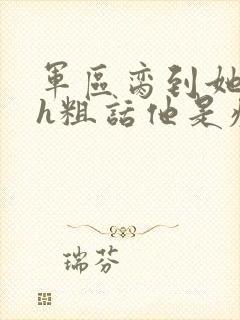 軍區宠到她
h粗話他是
瑞芬